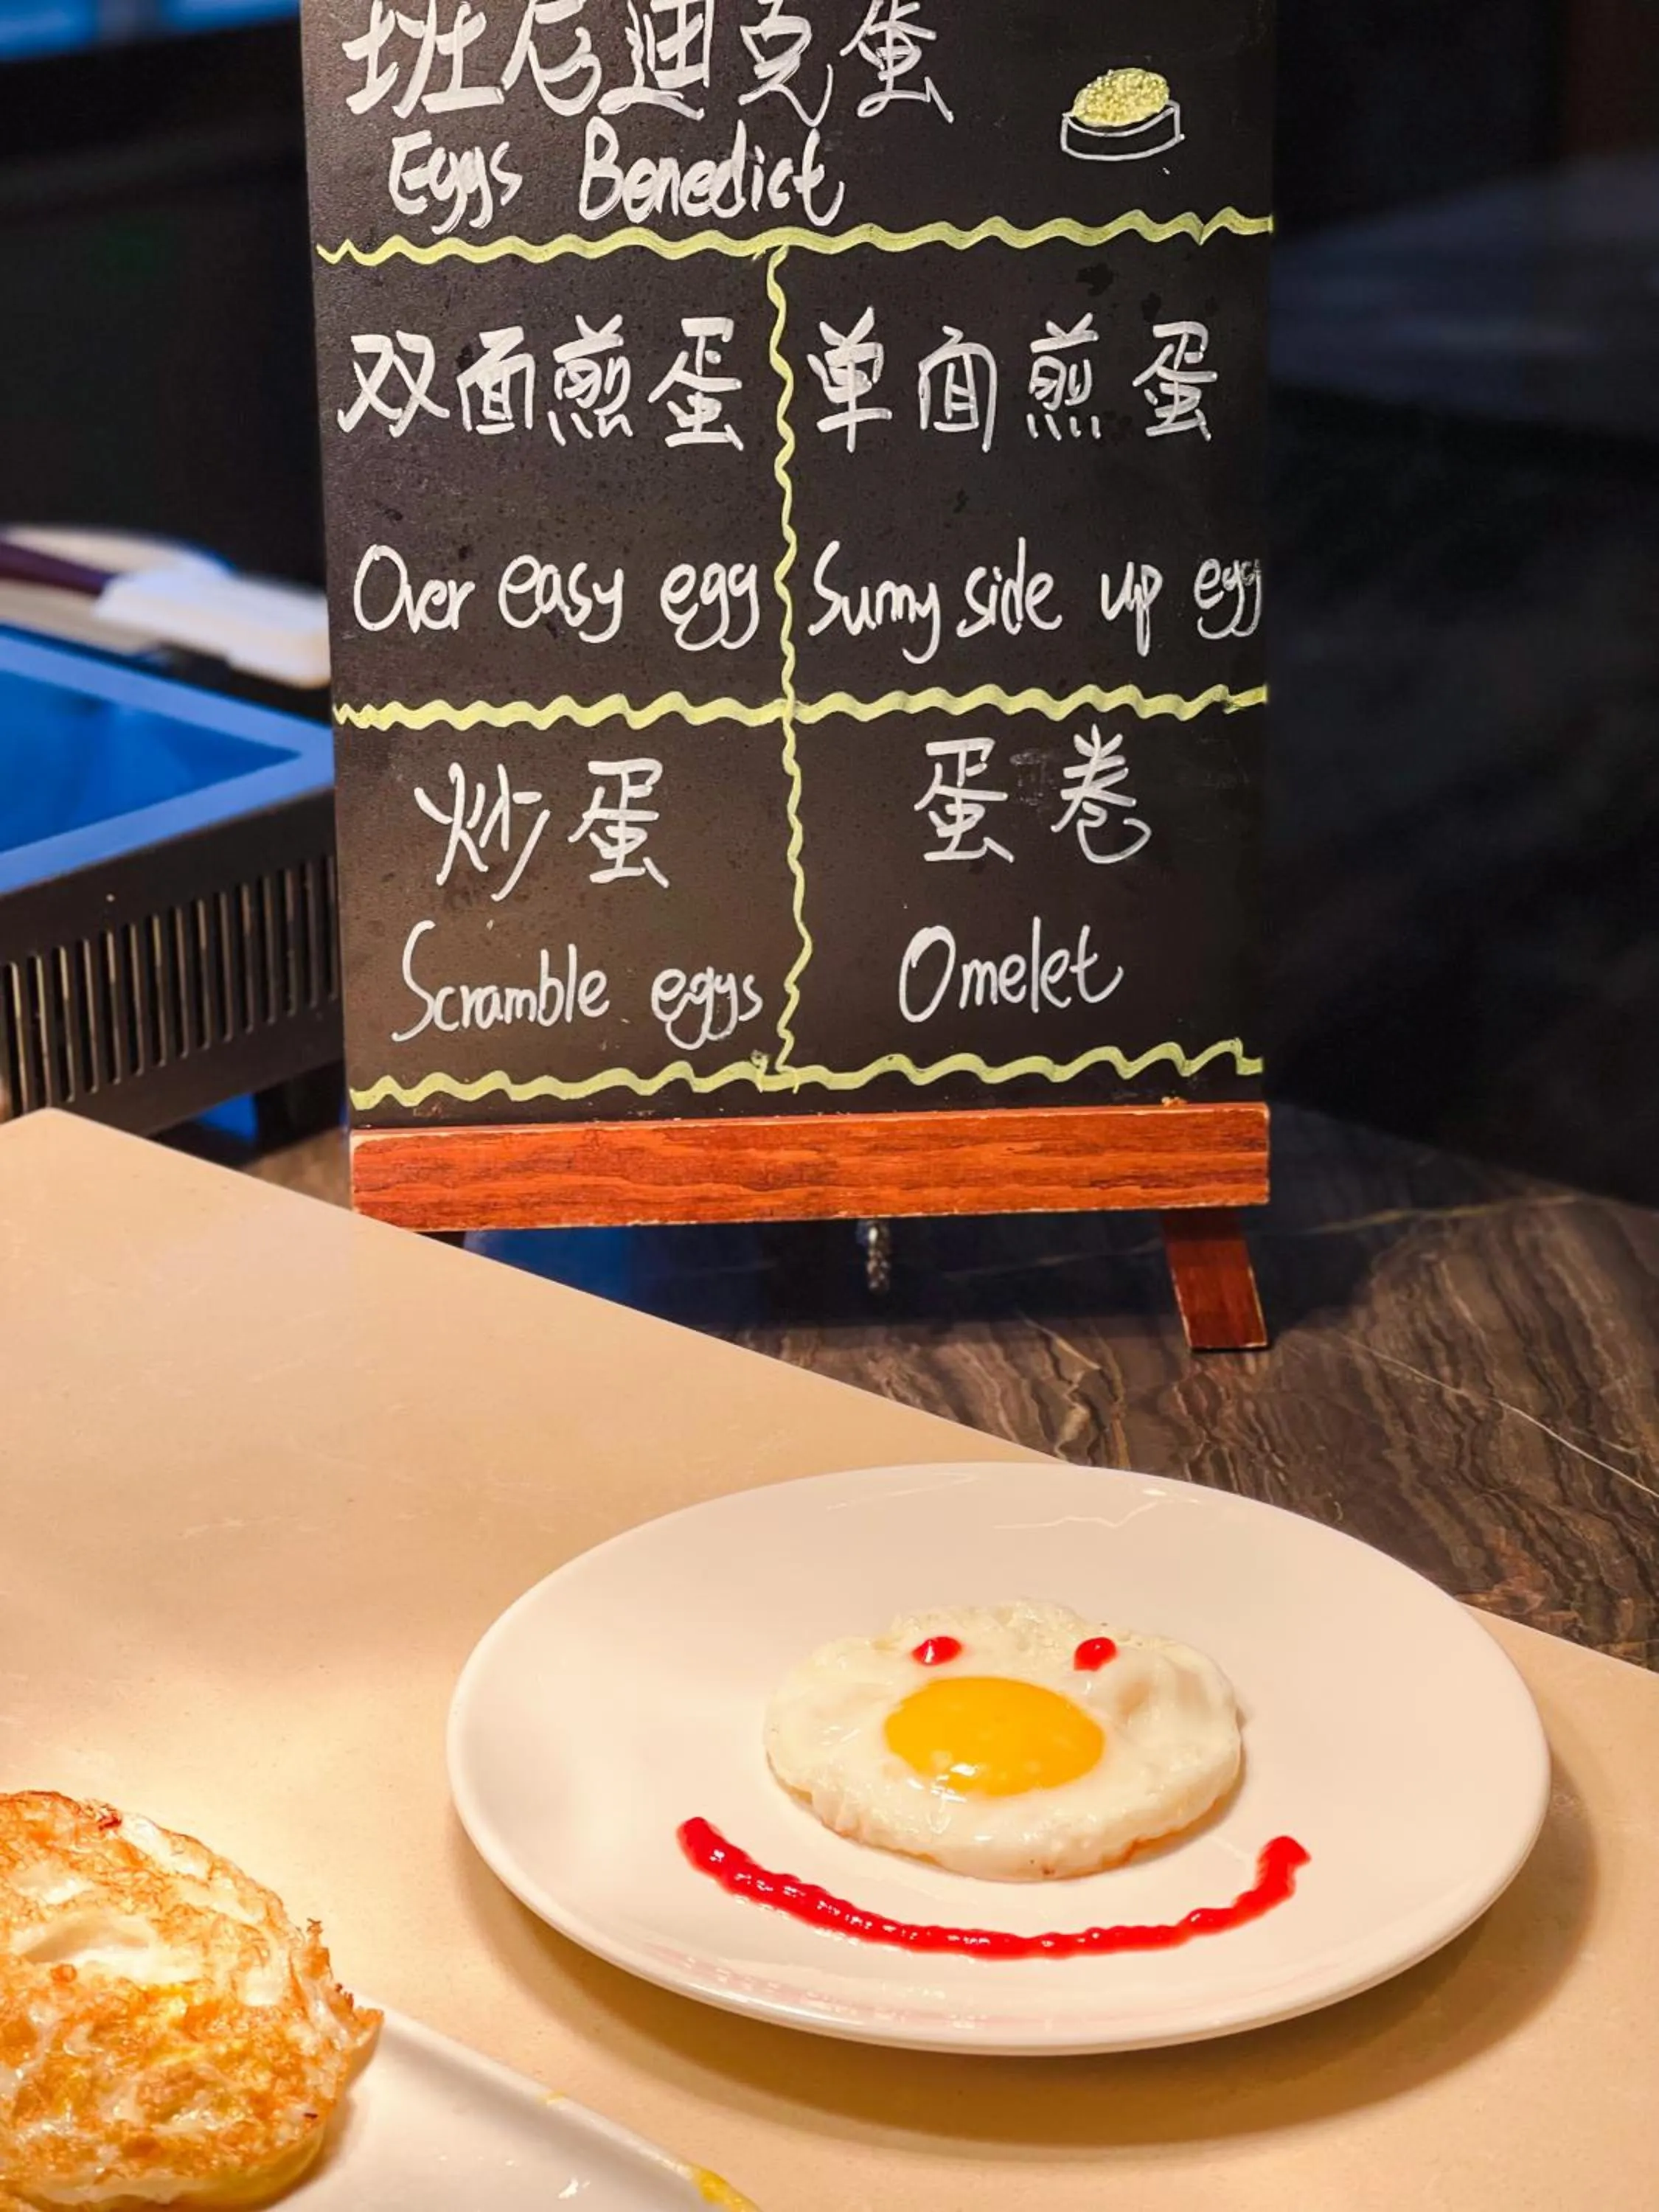 班尼迪克蛋
Eggs Benedict
双面煎蛋
Over easy egg
单面煎蛋
Sunny side up egg
炒蛋
Scramble eggs
蛋卷
Omelet